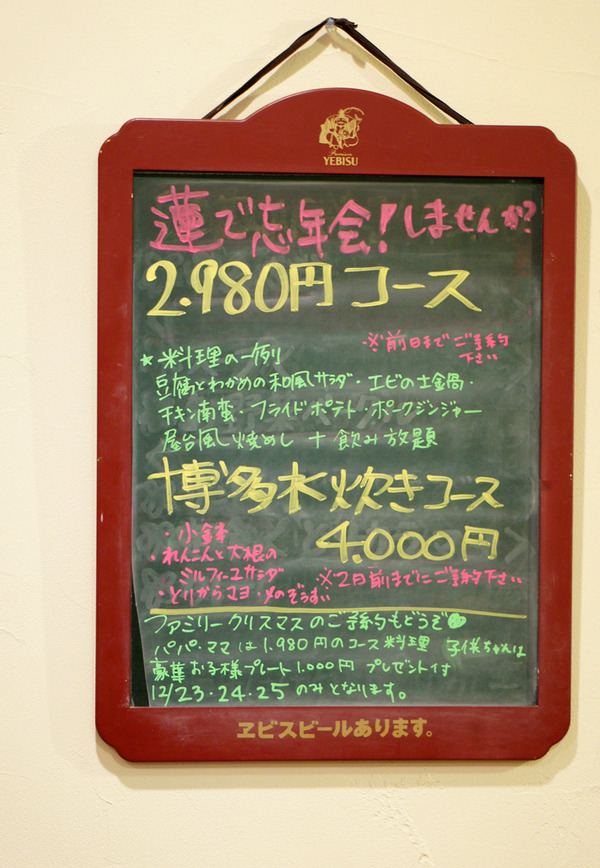 Premium
YEBISU
蓮で忘年会!しませんか?
2.980円コース
※前日までご予約
下さい
★料理の一例
豆腐とわかめの和風サラダ・エビの土鍋・
チキン南蛮・フライドポテト・ポークジンジャー
屋台風焼めし + 飲み放題
博多水炊きコース
4.000円
・小鉢
・れんこんと大根の
ミルフィーユサラダ
・とりからマヨ・〆のぞうすい
※2日前までにご予約下さい
ファミリークリスマスのご予約もどうぞ
パパ・ママは1.980円のコース料理 子供ちゃんは
豪華お子様プレート1.000円 プレゼント付
12/23・24・25 のみとなります。
ヱビスビールあります。